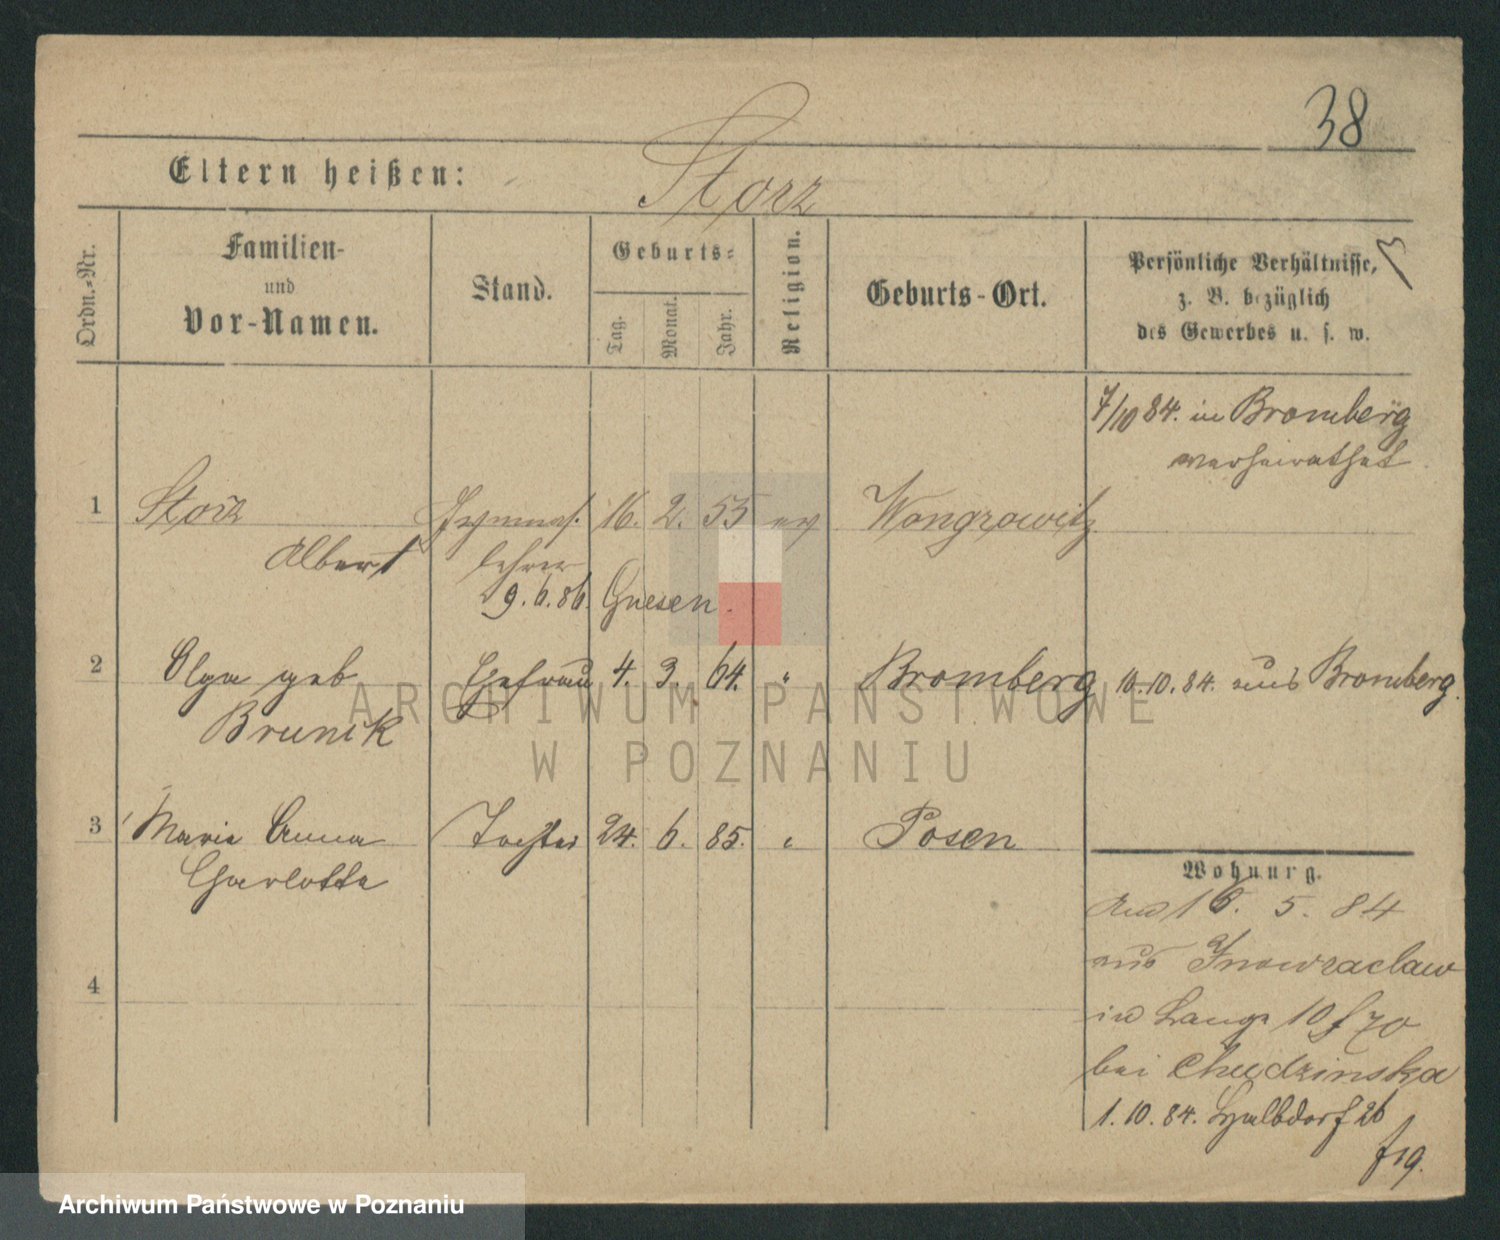 38
Eltern heißen:
Storz
Ordn.-Nr.
Familien-
und
Vor-Namen.
Stand.
Geburts-
Tag.
Monat.
Jahr.
Religion.
Geburts-Ort.
Persönliche Verhältnisse,
z. B. bezüglich
des Gewerbes u. s. w.
7/10 84. in Bromberg
verheirathet
1 Storz Gymnas. 16. 2. 55 ev Wongrowitz
Albert lehrer
9.6.86. Gnesen.
2 Olga geb Ehefrau 4. 3. 64. " Bromberg 10.10.84. aus Bromberg.
Brunik
3 Maria Anna Tochter 24. 6. 85. " Posen
Charlotte
4
Wohnung.
16. 5. 84
aus Inowraclaw
in Lange 10 f 70
bei Chudzinska
1.10.84. Halbdorf 26
f 19.
ARCHIWUM PAŃSTWOWE
W POZNANIU
Archiwum Państwowe w Poznaniu